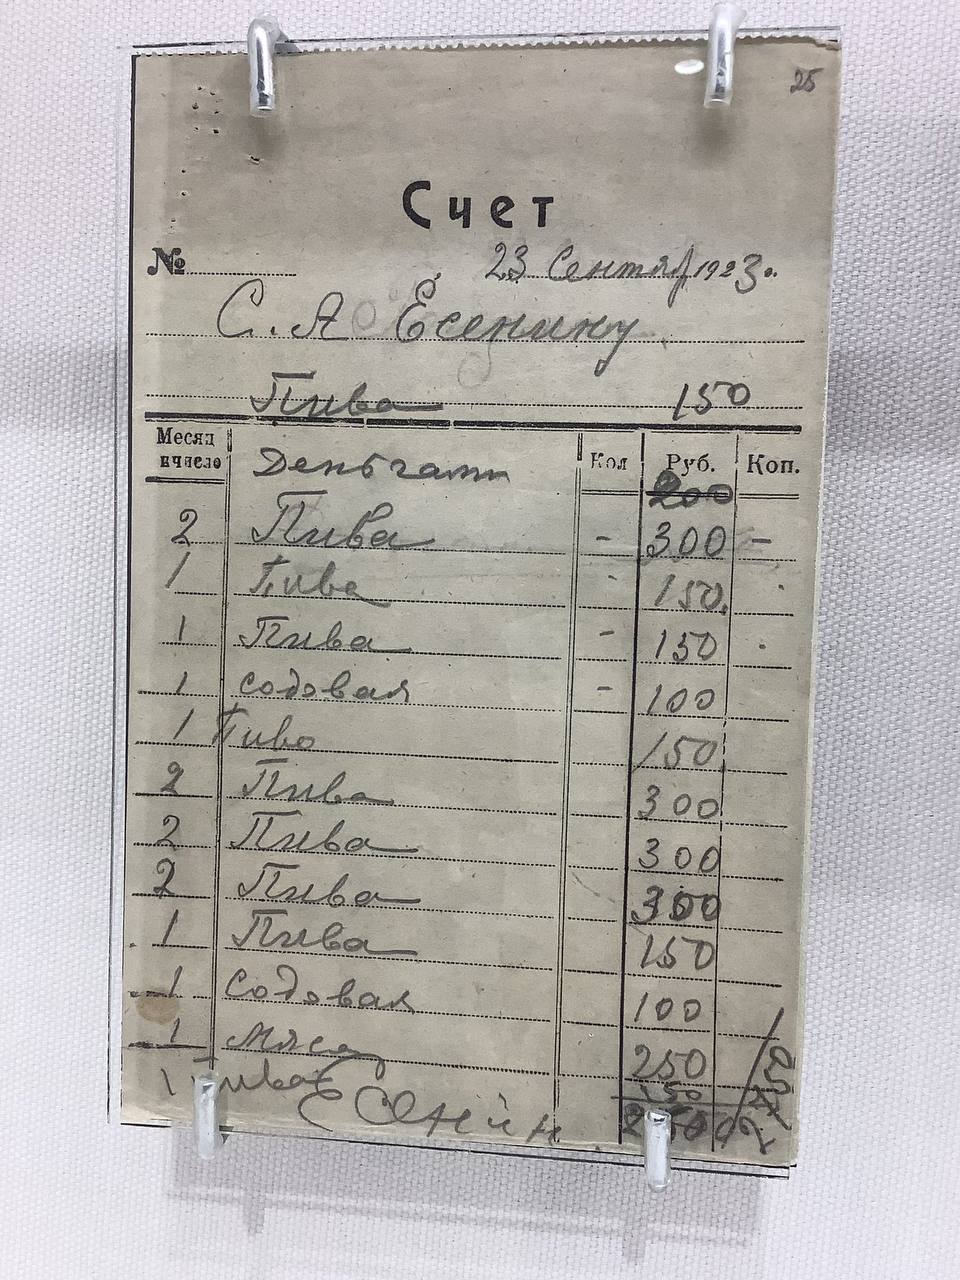 25
Счет
№ 23 Сентяб 1923 г.
С. А Есенину
Пива 150
Месяц и число Деньгами Кол Руб. Коп.
200
2 Пива - 300 -
1 Пива - 150
1 Пива - 150
1 содовая - 100
1 Пиво 150
2 Пива 300
2 Пива 300
2 Пива 300
1 Пива 150
1 Содовая 100
1 Мясо 250
1 Пиво 150
ЕСЕНИН